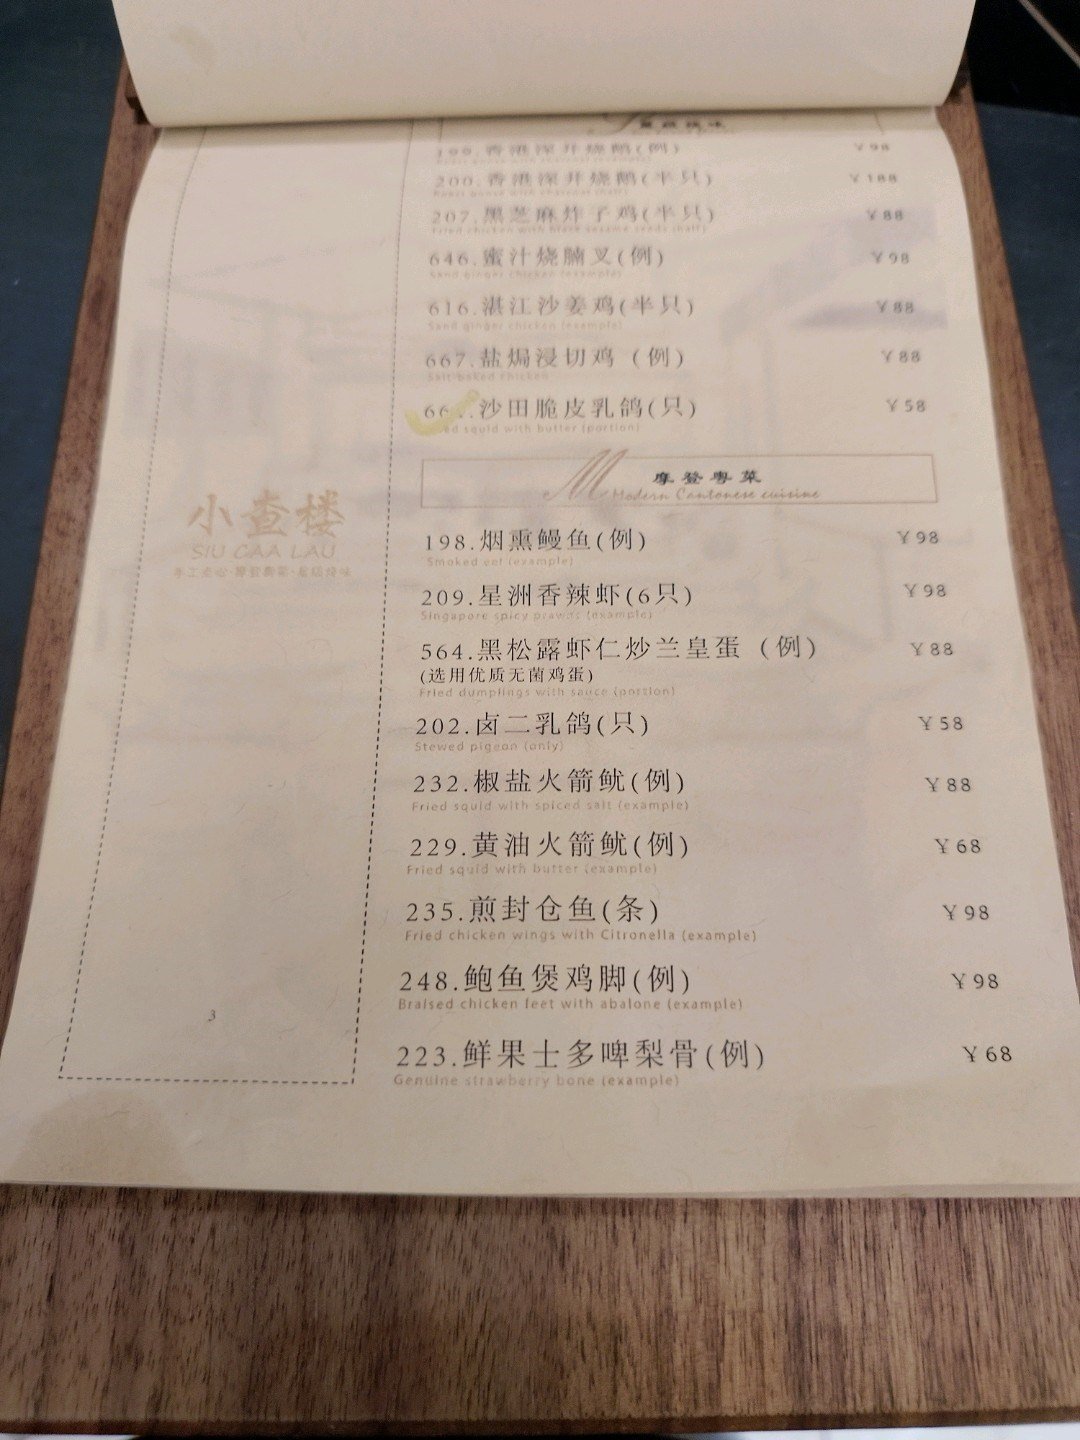 199.香港深井烧鹅(例) ¥98
200.香港深井烧鹅(半只) ¥188
207.黑芝麻炸子鸡(半只) ¥88
Fried chicken with black sesame seeds (half)
646.蜜汁烧腩叉(例) ¥98
Sand ginger chicken (example)
616.湛江沙姜鸡(半只) ¥88
Sand ginger chicken (example)
667.盐焗浸切鸡 (例) ¥88
Salt-baked chicken
沙田脆皮乳鸽(只) ¥58
squid with butter (portion)
摩登粤菜
Modern Cantonese cuisine
小查楼
SIU CAA LAU
198.烟熏鳗鱼(例) ¥98
Smoked eel (example)
209.星洲香辣虾(6只) ¥98
Singapore spicy prawns (example)
564.黑松露虾仁炒兰皇蛋 (例) ¥88
(选用优质无菌鸡蛋)
Fried dumplings with sauce (portion)
202.卤二乳鸽(只) ¥58
Stewed pigeon (only)
232.椒盐火箭鱿(例) ¥88
Fried squid with spiced salt (example)
229.黄油火箭鱿(例) ¥68
Fried squid with butter (example)
235.煎封仓鱼(条) ¥98
Fried chicken wings with Citronella (example)
248.鲍鱼煲鸡脚(例) ¥98
Braised chicken feet with abalone (example)
223.鲜果士多啤梨骨(例) ¥68
Genuine strawberry bone (example)
3